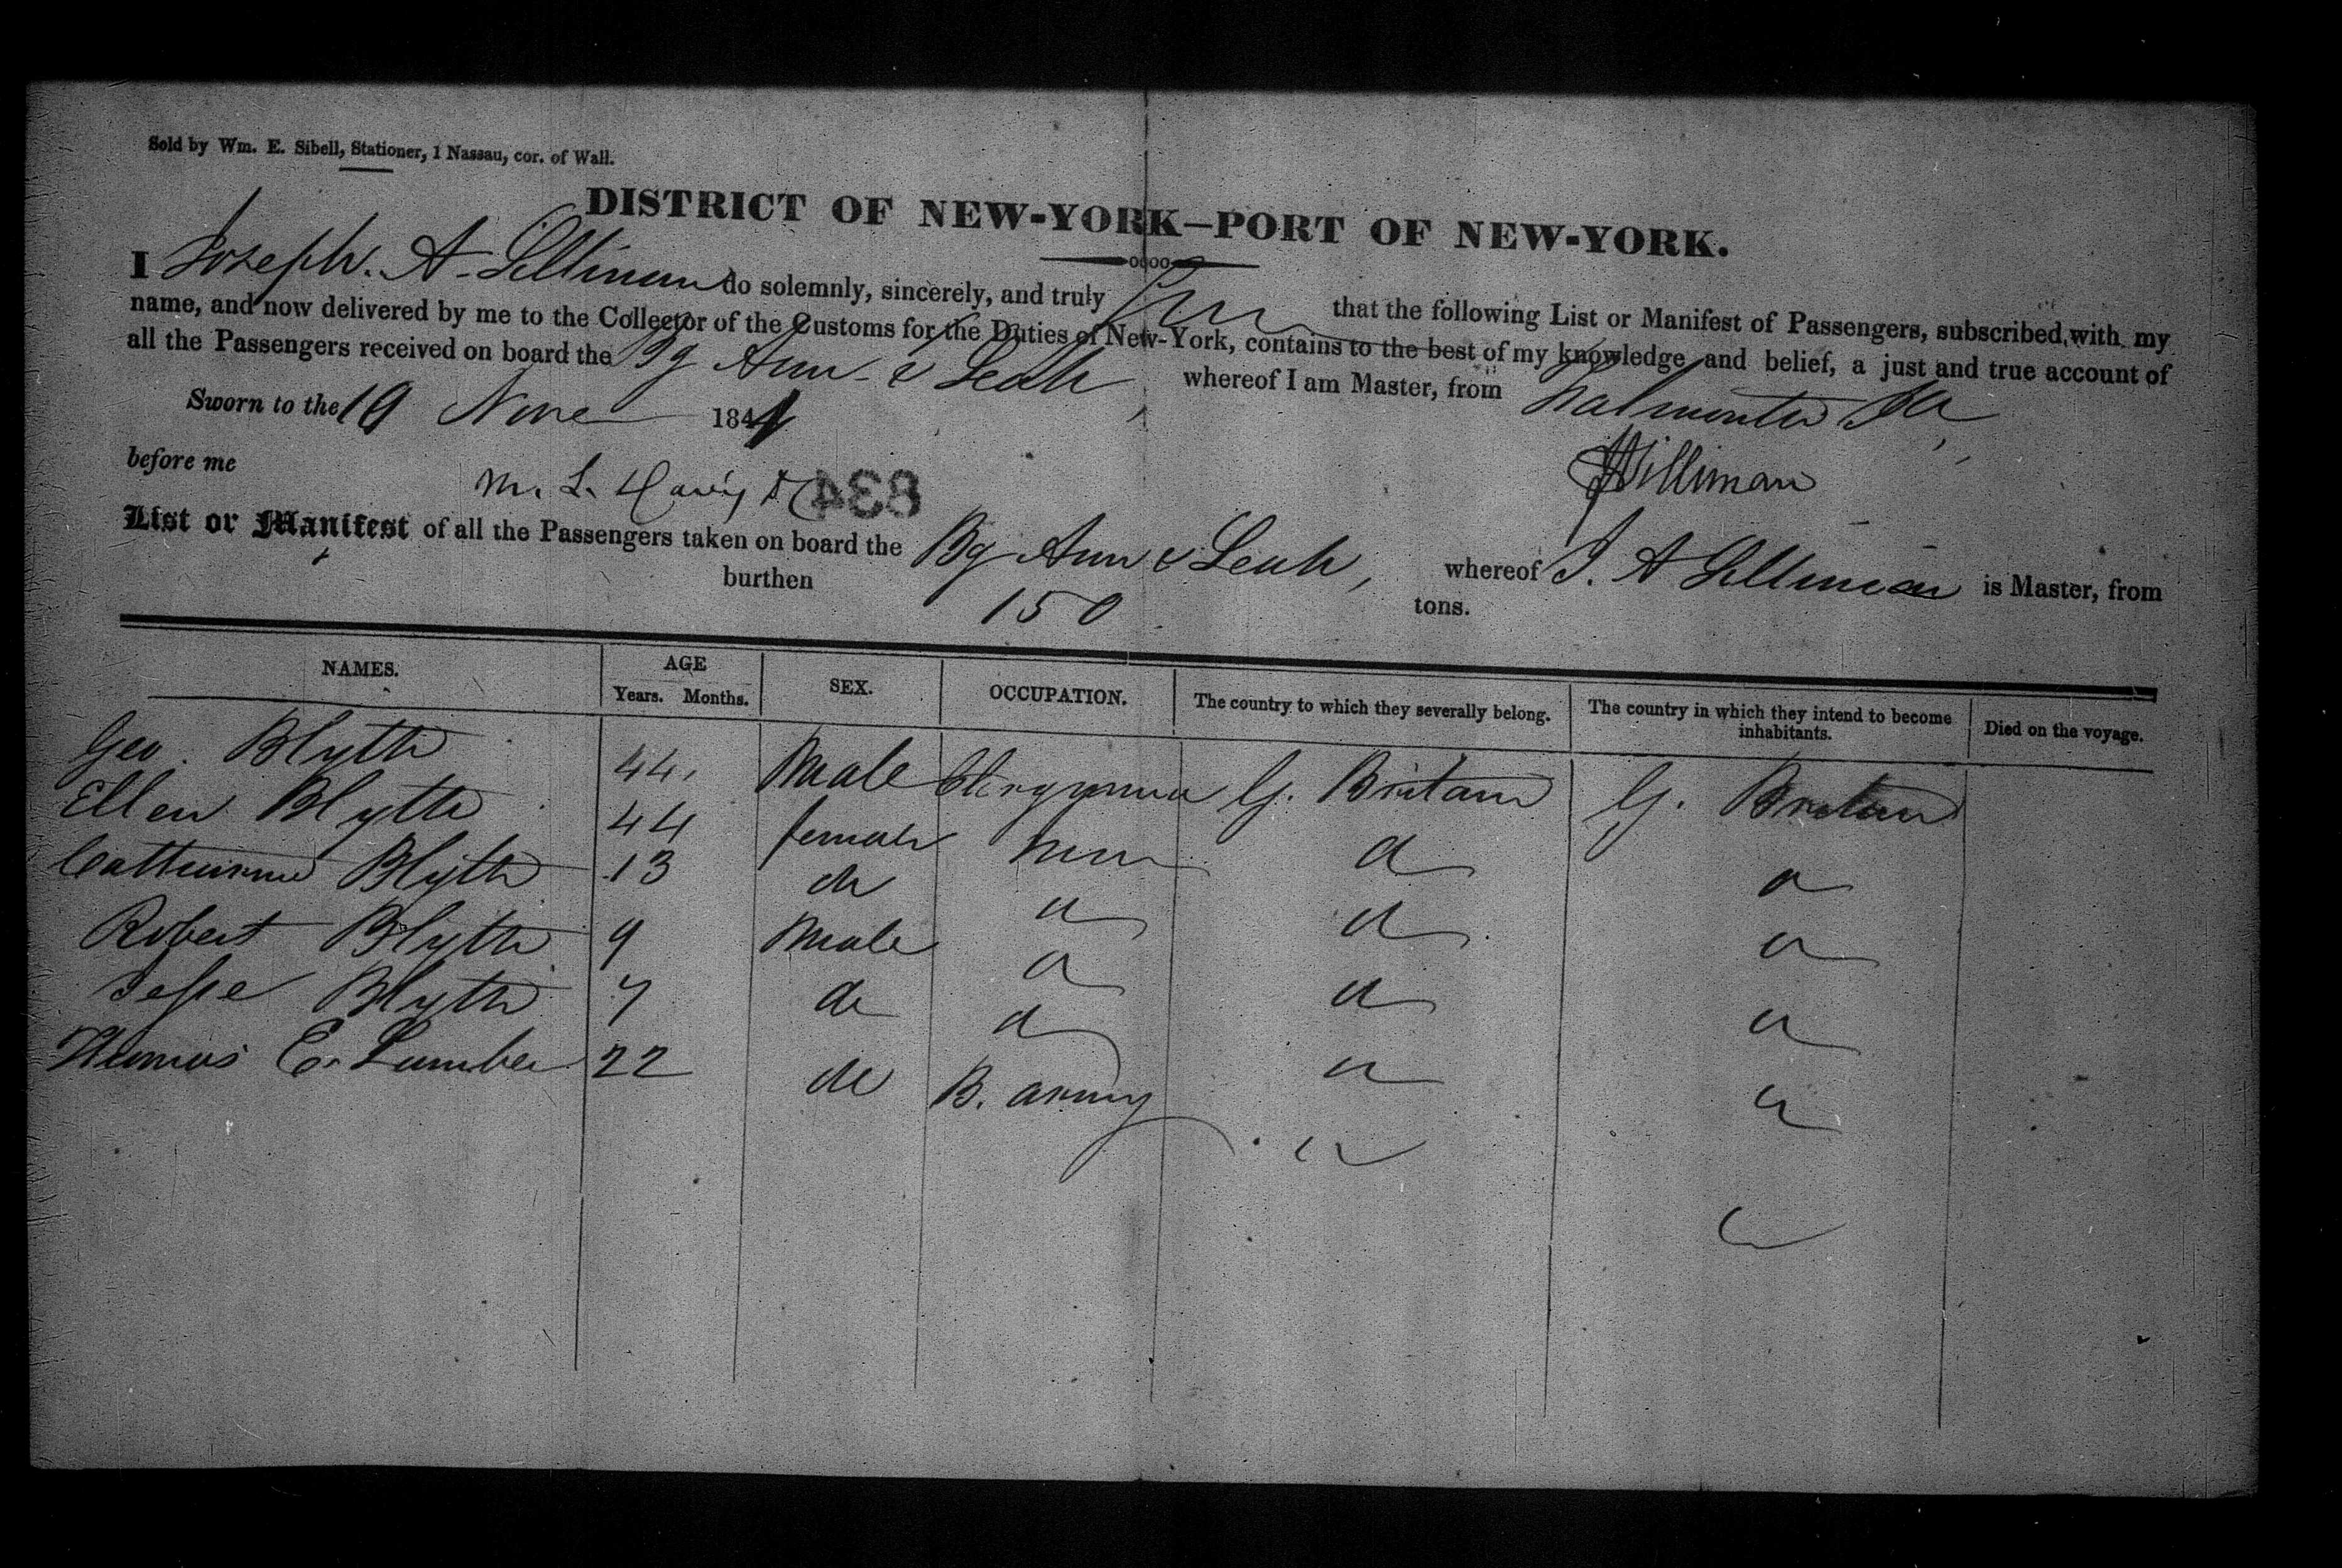 Sold by Wm. E. Sibell, Stationer, 1 Nassau, cor. of Wall.
DISTRICT OF NEW-YORK—PORT OF NEW-YORK.
I Joseph. A. Silliman do solemnly, sincerely, and truly that the following List or Manifest of Passengers, subscribed with my
name, and now delivered by me to the Collector of the Customs for the Duties of New-York, contains to the best of my knowledge and belief, a just and true account of
all the Passengers received on board the Bg Ann & Leah, whereof I am Master, from Falmouth Ja,
Sworn to the 19 Nove 1844
before me
M. L. Davis
834
JASilliman
List or Manifest of all the Passengers taken on board the Bg Ann & Leah, whereof J. A Silliman is Master, from
burthen 150 tons.
NAMES. AGE SEX. OCCUPATION. The country to which they severally belong. The country in which they intend to become inhabitants. Died on the voyage.
Years. Months.
Geo. Blyth 44. Male Clergyman G. Britain G. Britain
Ellen Blyth 44 female None d d
Catherine Blyth 13 do d d d
Robert Blyth 9 Male d d d
Jesse Blyth 7 do d d d
Thomas E. Lumber 22 do B. army d d